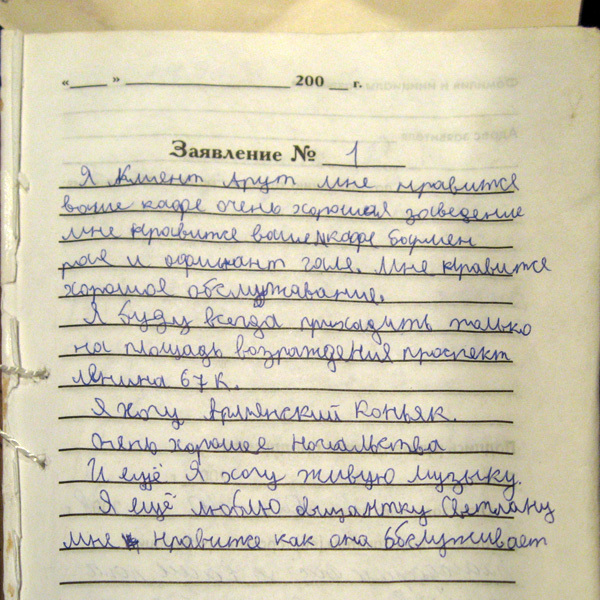 « » 200 г.
Заявление № 1
Я Клиент Арут мне нравится
ваше кафе очень хорошая заведение
мне нравитсе ваше кафе бармен
рая и официант галя. мне нравится
хорошое обслуживание.
Я буду всегда приходить только
на площадь возраждения проспект
ленина 67 к.
Я хочу Армянский Коньяк.
очень хорошее начальства
И ещё Я хочу живую музыку.
Я ещё люблю Светлану
мне нравитсе как она обслуживает